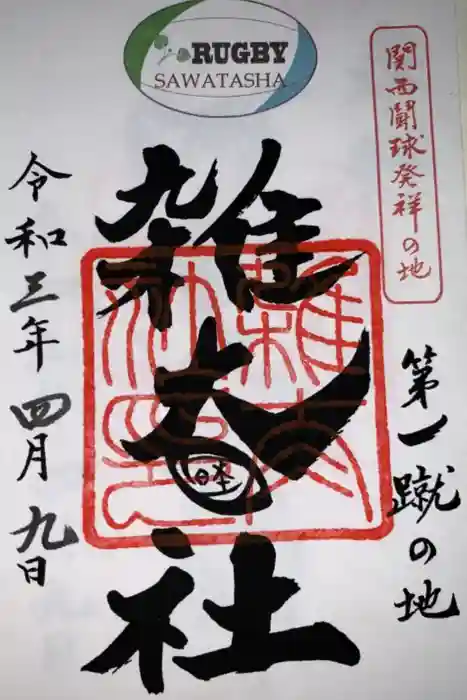 RUGBY
SAWATASHA
関西闘球発祥の地
第一蹴の地
雑太社
令和三年四月九日